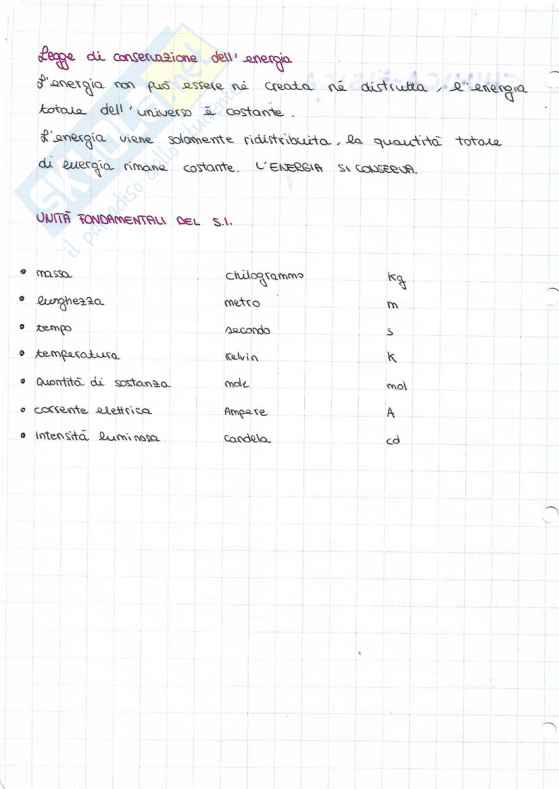 Legge di conservazione dell'energia
L'energia non può essere né creata né distrutta, l'energia
totale dell'universo è costante.
L'energia viene solamente ridistribuita, la quantità totale
di energia rimane costante. L'ENERGIA SI CONSERVA.
UNITÀ FONDAMENTALI DEL S.I.
• massa chilogrammo Kg
• lunghezza metro m
• tempo secondo s
• temperatura Kelvin K
• Quantità di sostanza mole mol
• corrente elettrica Ampere A
• Intensità luminosa candela cd